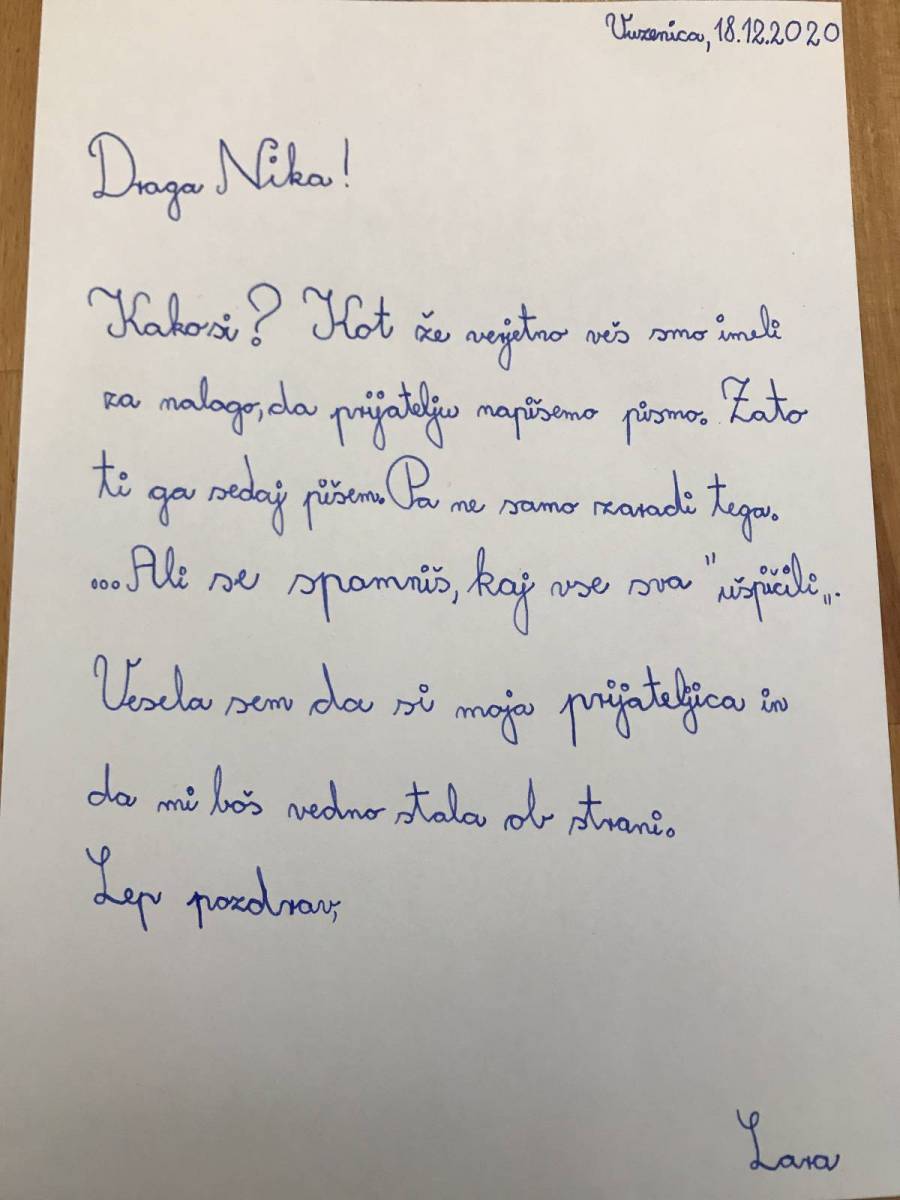 Vuzenica, 18.12.2020
Draga Nika!
Kako si? Kot že verjetno veš smo imeli
za nalogo, da prijatelju napišemo pismo. Zato
ti ga sedaj pišem. Pa ne samo zaradi tega.
...Ali se spomniš, kaj vse sva "ušpičili„.
Vesela sem da si moja prijateljica in
da mi boš vedno stala ob strani.
Lep pozdrav,
Lara